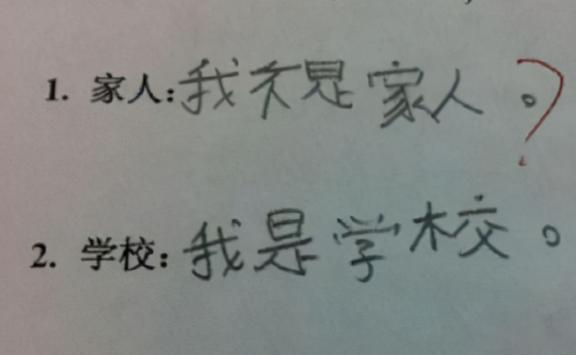 1. 家人:我不是家人。?
2. 学校:我是学校。